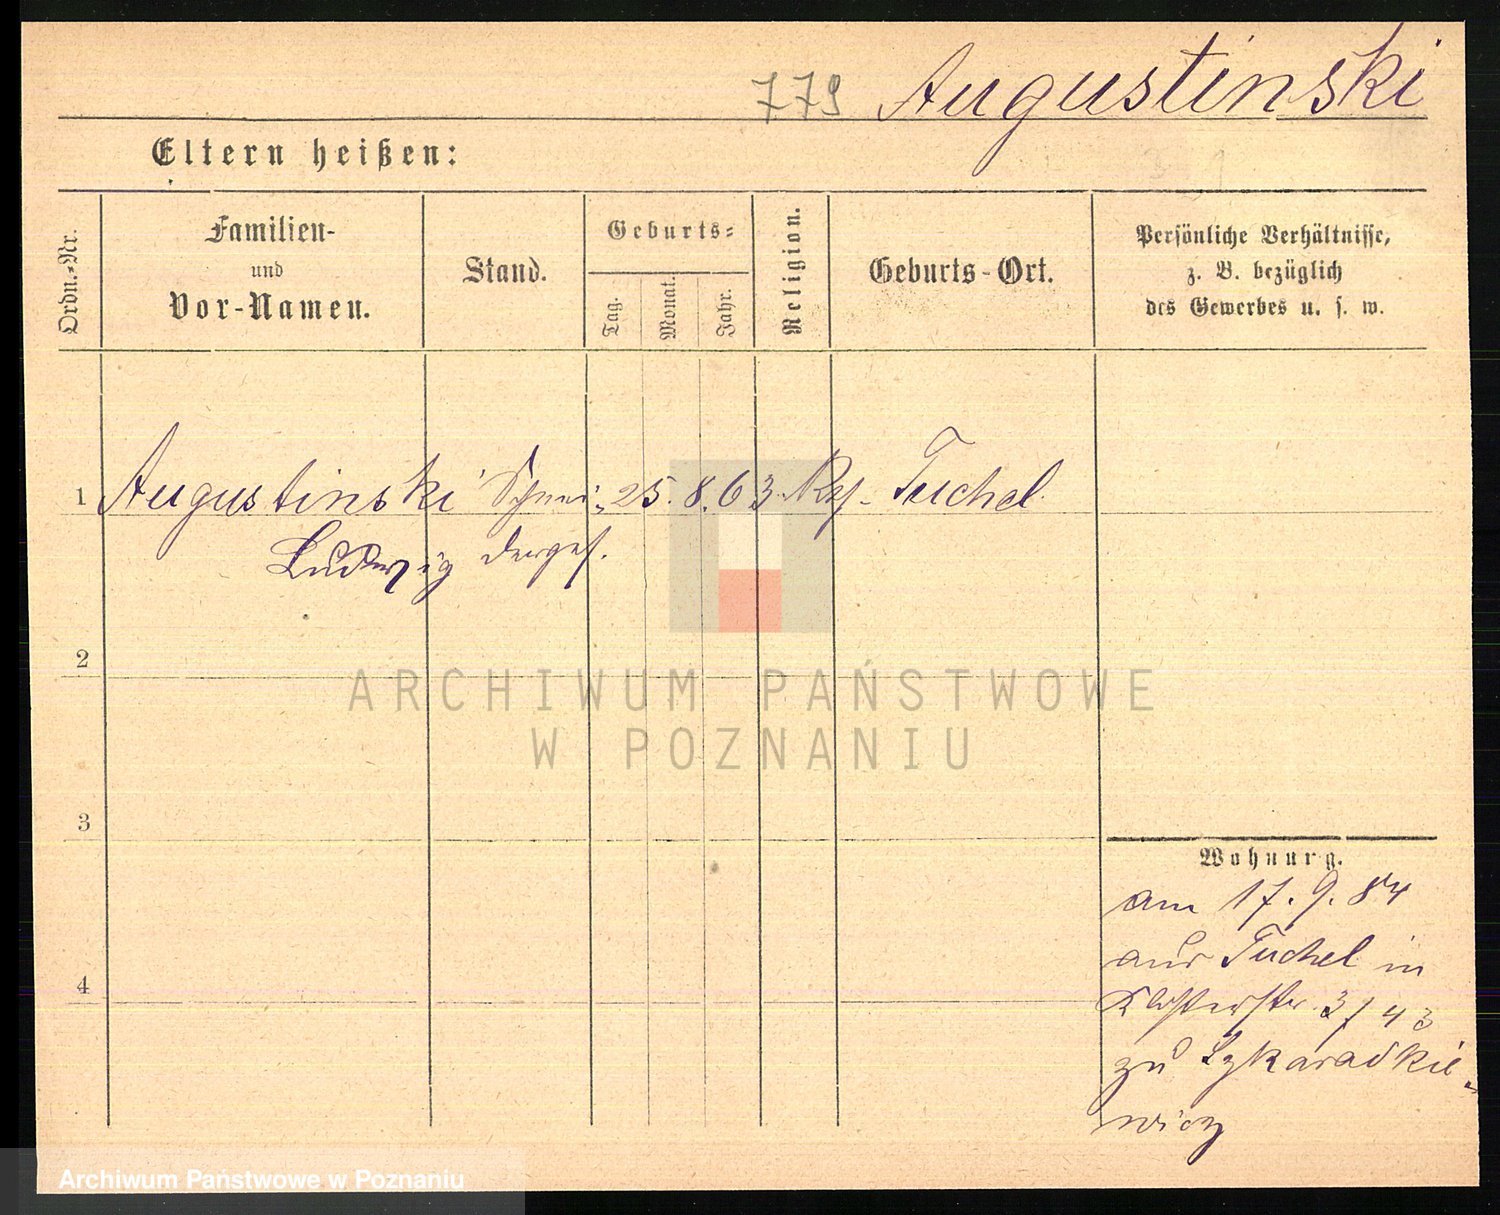 779 Augustinski
Eltern heißen:
Ordn.-Nr.
Familien-
und
Vor-Namen.
Stand.
Geburts-
Tag.
Monat.
Jahr.
Religion.
Geburts-Ort.
Persönliche Verhältnisse,
z. B. bezüglich
des Gewerbes u. s. w.
1 Augustinski Schnei- 25. 8. 63. Tuchel
Ludwig derges.
2
ARCHIWUM PAŃSTWOWE
W POZNANIU
3
Wohnung.
am 17. 9. 84
aus Tuchel in
4
Klosterstr. 3/43
zu Szkaradkie-
wicz
Archiwum Państwowe w Poznaniu